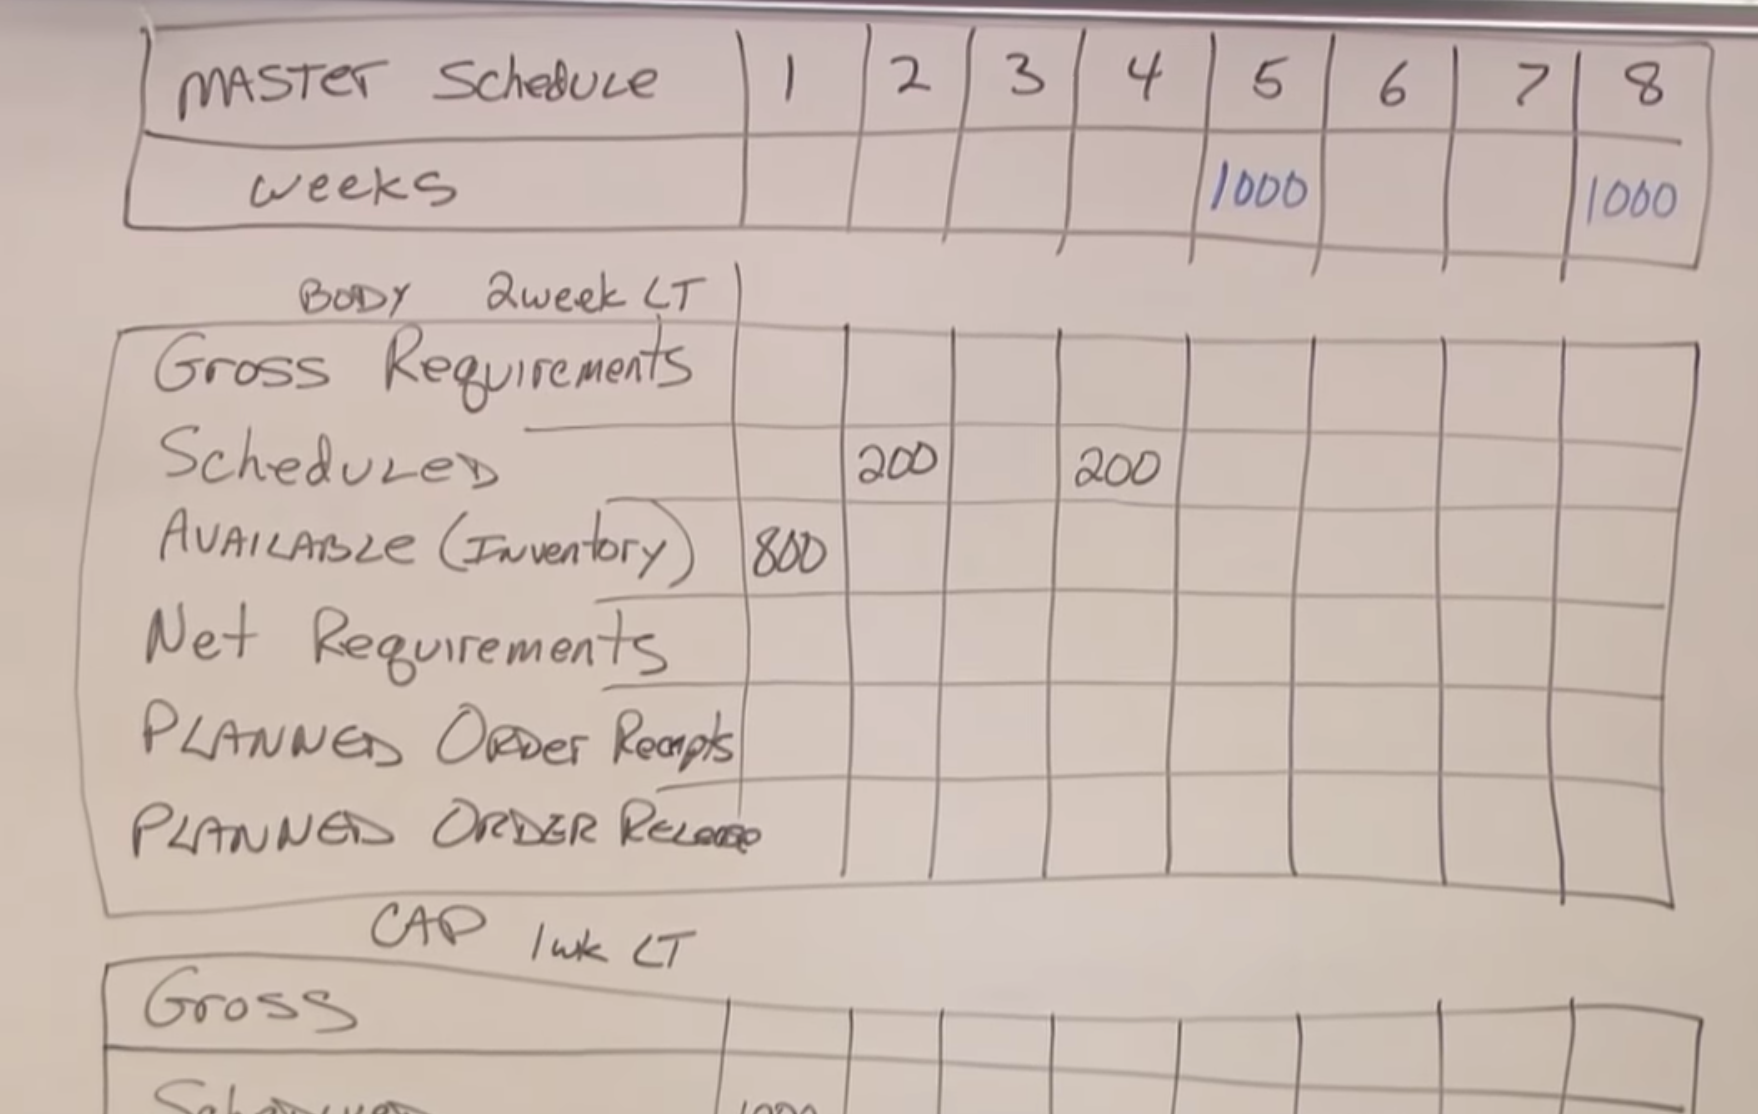 MASTER SCHEDULE 1 2 3 4 5 6 7 8
weeks 1000 1000
BODY 2week LT
Gross Requirements
SCHEDULED 200 200
AVAILABLE (INventory) 800
Net Requirements
PLANNED ORDer Receipts
PLANNED ORDER Release
CAP 1wk LT
Gross